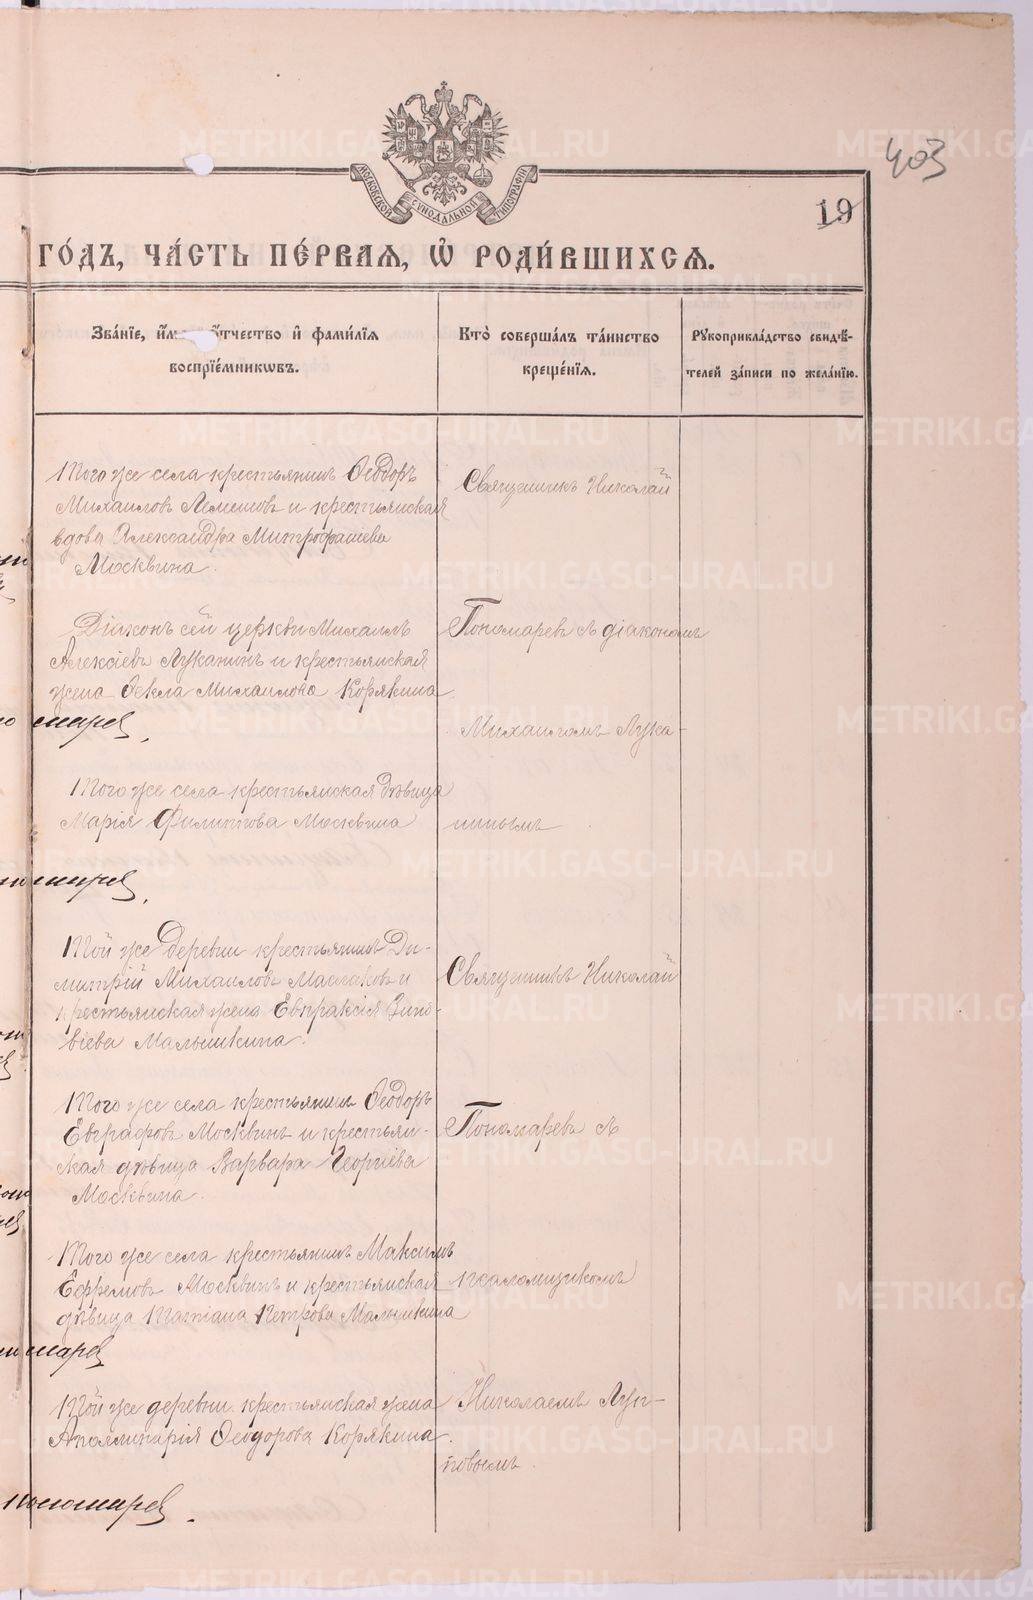 403
19
МОСКОВСКОЙ СѴНОДАЛЬНОЙ ТИПОГРАФІИ
ГО́ДЪ, ЧА́СТЬ ПЕ́РВАЯ, Ѽ РОДИ́ВШИХСЯ.
Зва́нїе, и҆́м ѻ҆́тчество и҆ фами́лїѧ
воспрїе́мникѡвъ.
Кто̀ соверша́лъ та́инство
креще́нїѧ.
Рꙋкоприкла́дство свидѣ́-
телей за́писи по жела́нїю.
Того же села крестьянинъ Ѳеодоръ
Михаиловъ и крестьянская
вдова Александра Митрофанова
Москвина.
Священникъ Николай
Діаконъ сей церкви Михаилъ
Алексіевъ Луканинъ и крестьянская
жена Ѳекла Михаилова Корякина
Пономаревъ съ діакономъ
Михаиломъ Лука-
Того же села крестьянская дѣвица
Марія Филиппова Москвина
нинымъ
Той же деревни крестьянинъ Ди-
митрій Михаиловъ и
крестьянская жена Евпраксія Зино-
віева Малышкина.
Священникъ Николай
Того же села крестьянинъ Ѳеодоръ
Евграфовъ Москвинъ и крестьян-
ская дѣвица Варвара Георгіева
Москвина.
Пономаревъ съ
Того же села крестьянинъ Максимъ
Ефремовъ Москвинъ и крестьянская
дѣвица Татіана Петрова Малышкина
псаломщикомъ
Той же деревни крестьянская жена
Аполлинарія Ѳеодорова Корякина.
Николаемъ Луп-
повымъ.
Пономарев.
METRIKI.GASO-URAL.RU